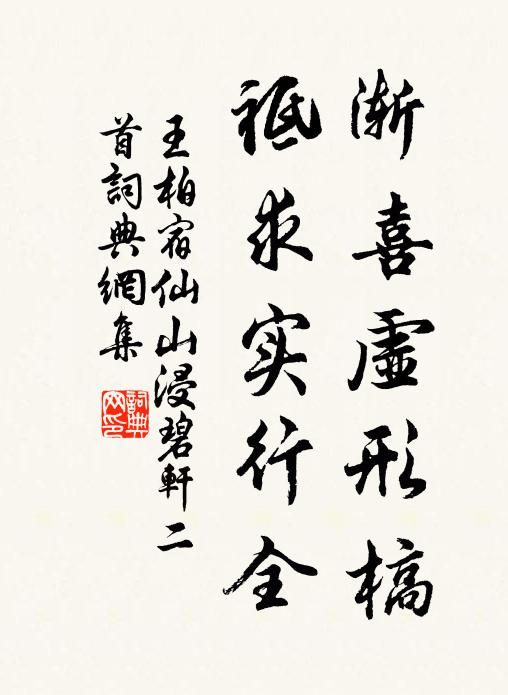 漸喜虛形槁
祗求实行全
王柏宿仙山浸碧軒二
首詞典網集
詞典
网印